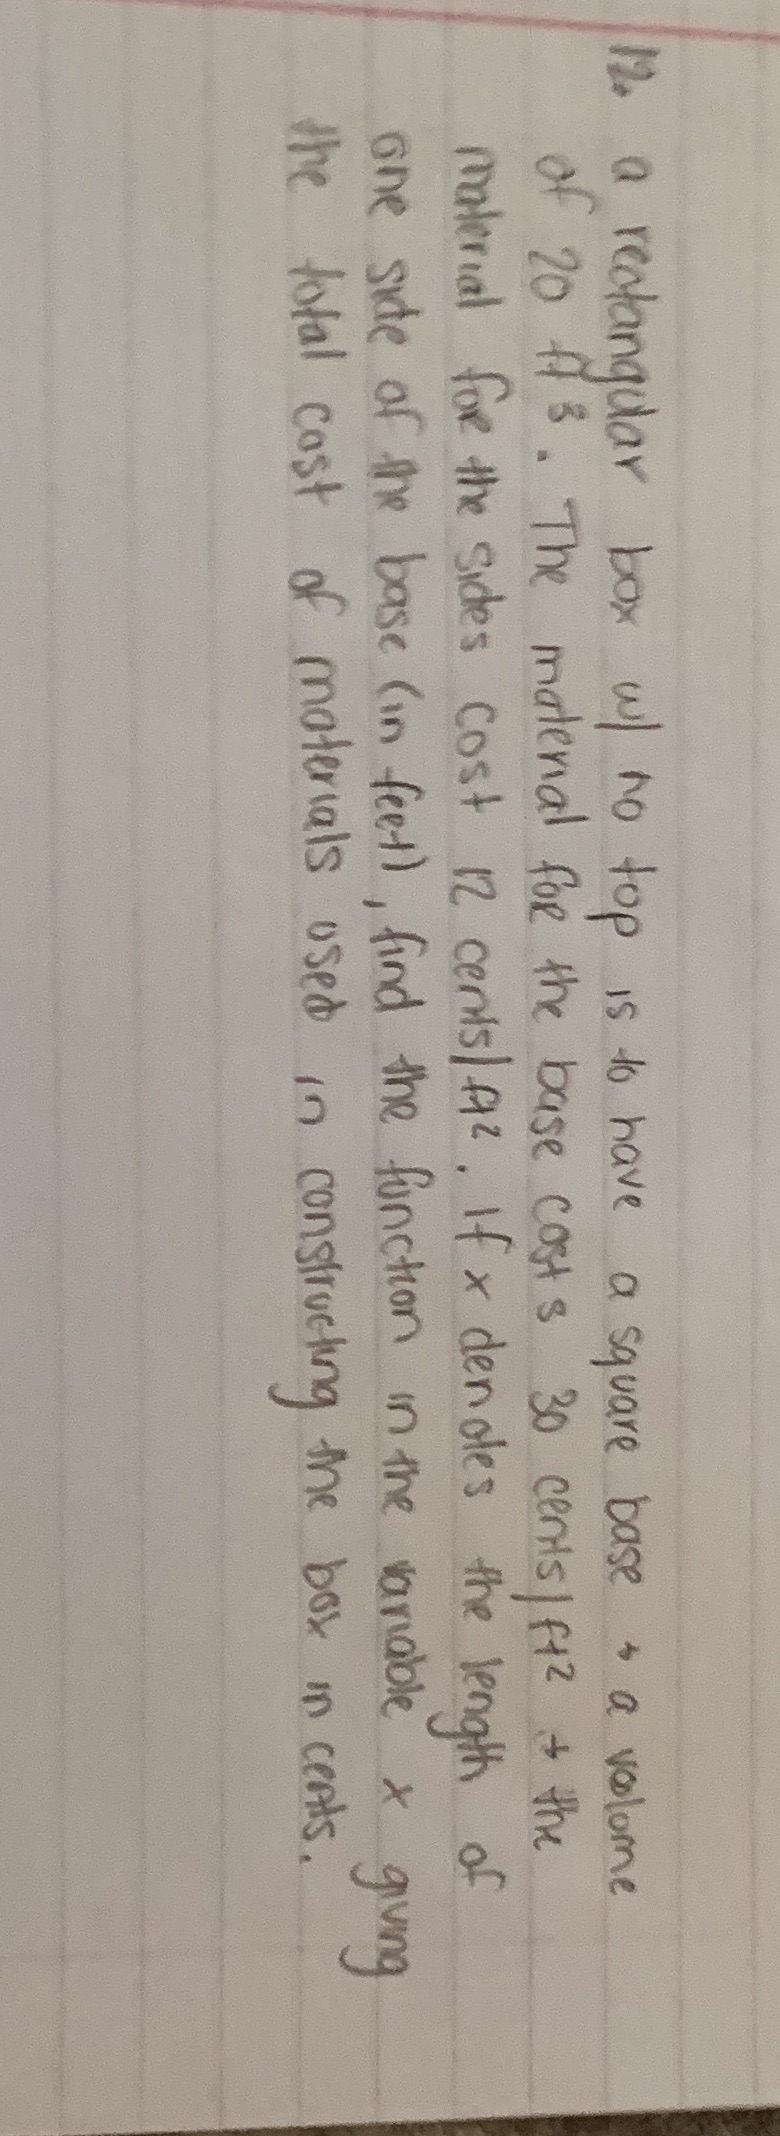 12. a rectangular box w/ no top is to have a square base + a volume
of 20 ft³. The material for the base costs 30 cents/ft² + the
material for the sides cost 12 cents/ft². If x denotes the length of
one side of the base (in feet), find the function in the variable x giving
the total cost of materials used in constructing the box in cents.